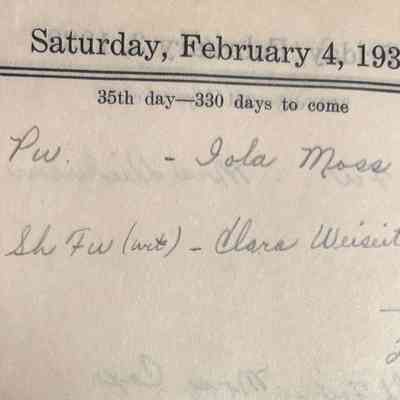 Saturday, February 4, 193
35th day—330 days to come
Pw. - Iola Moss
Sh Fw (wt) - Clara Weiseit